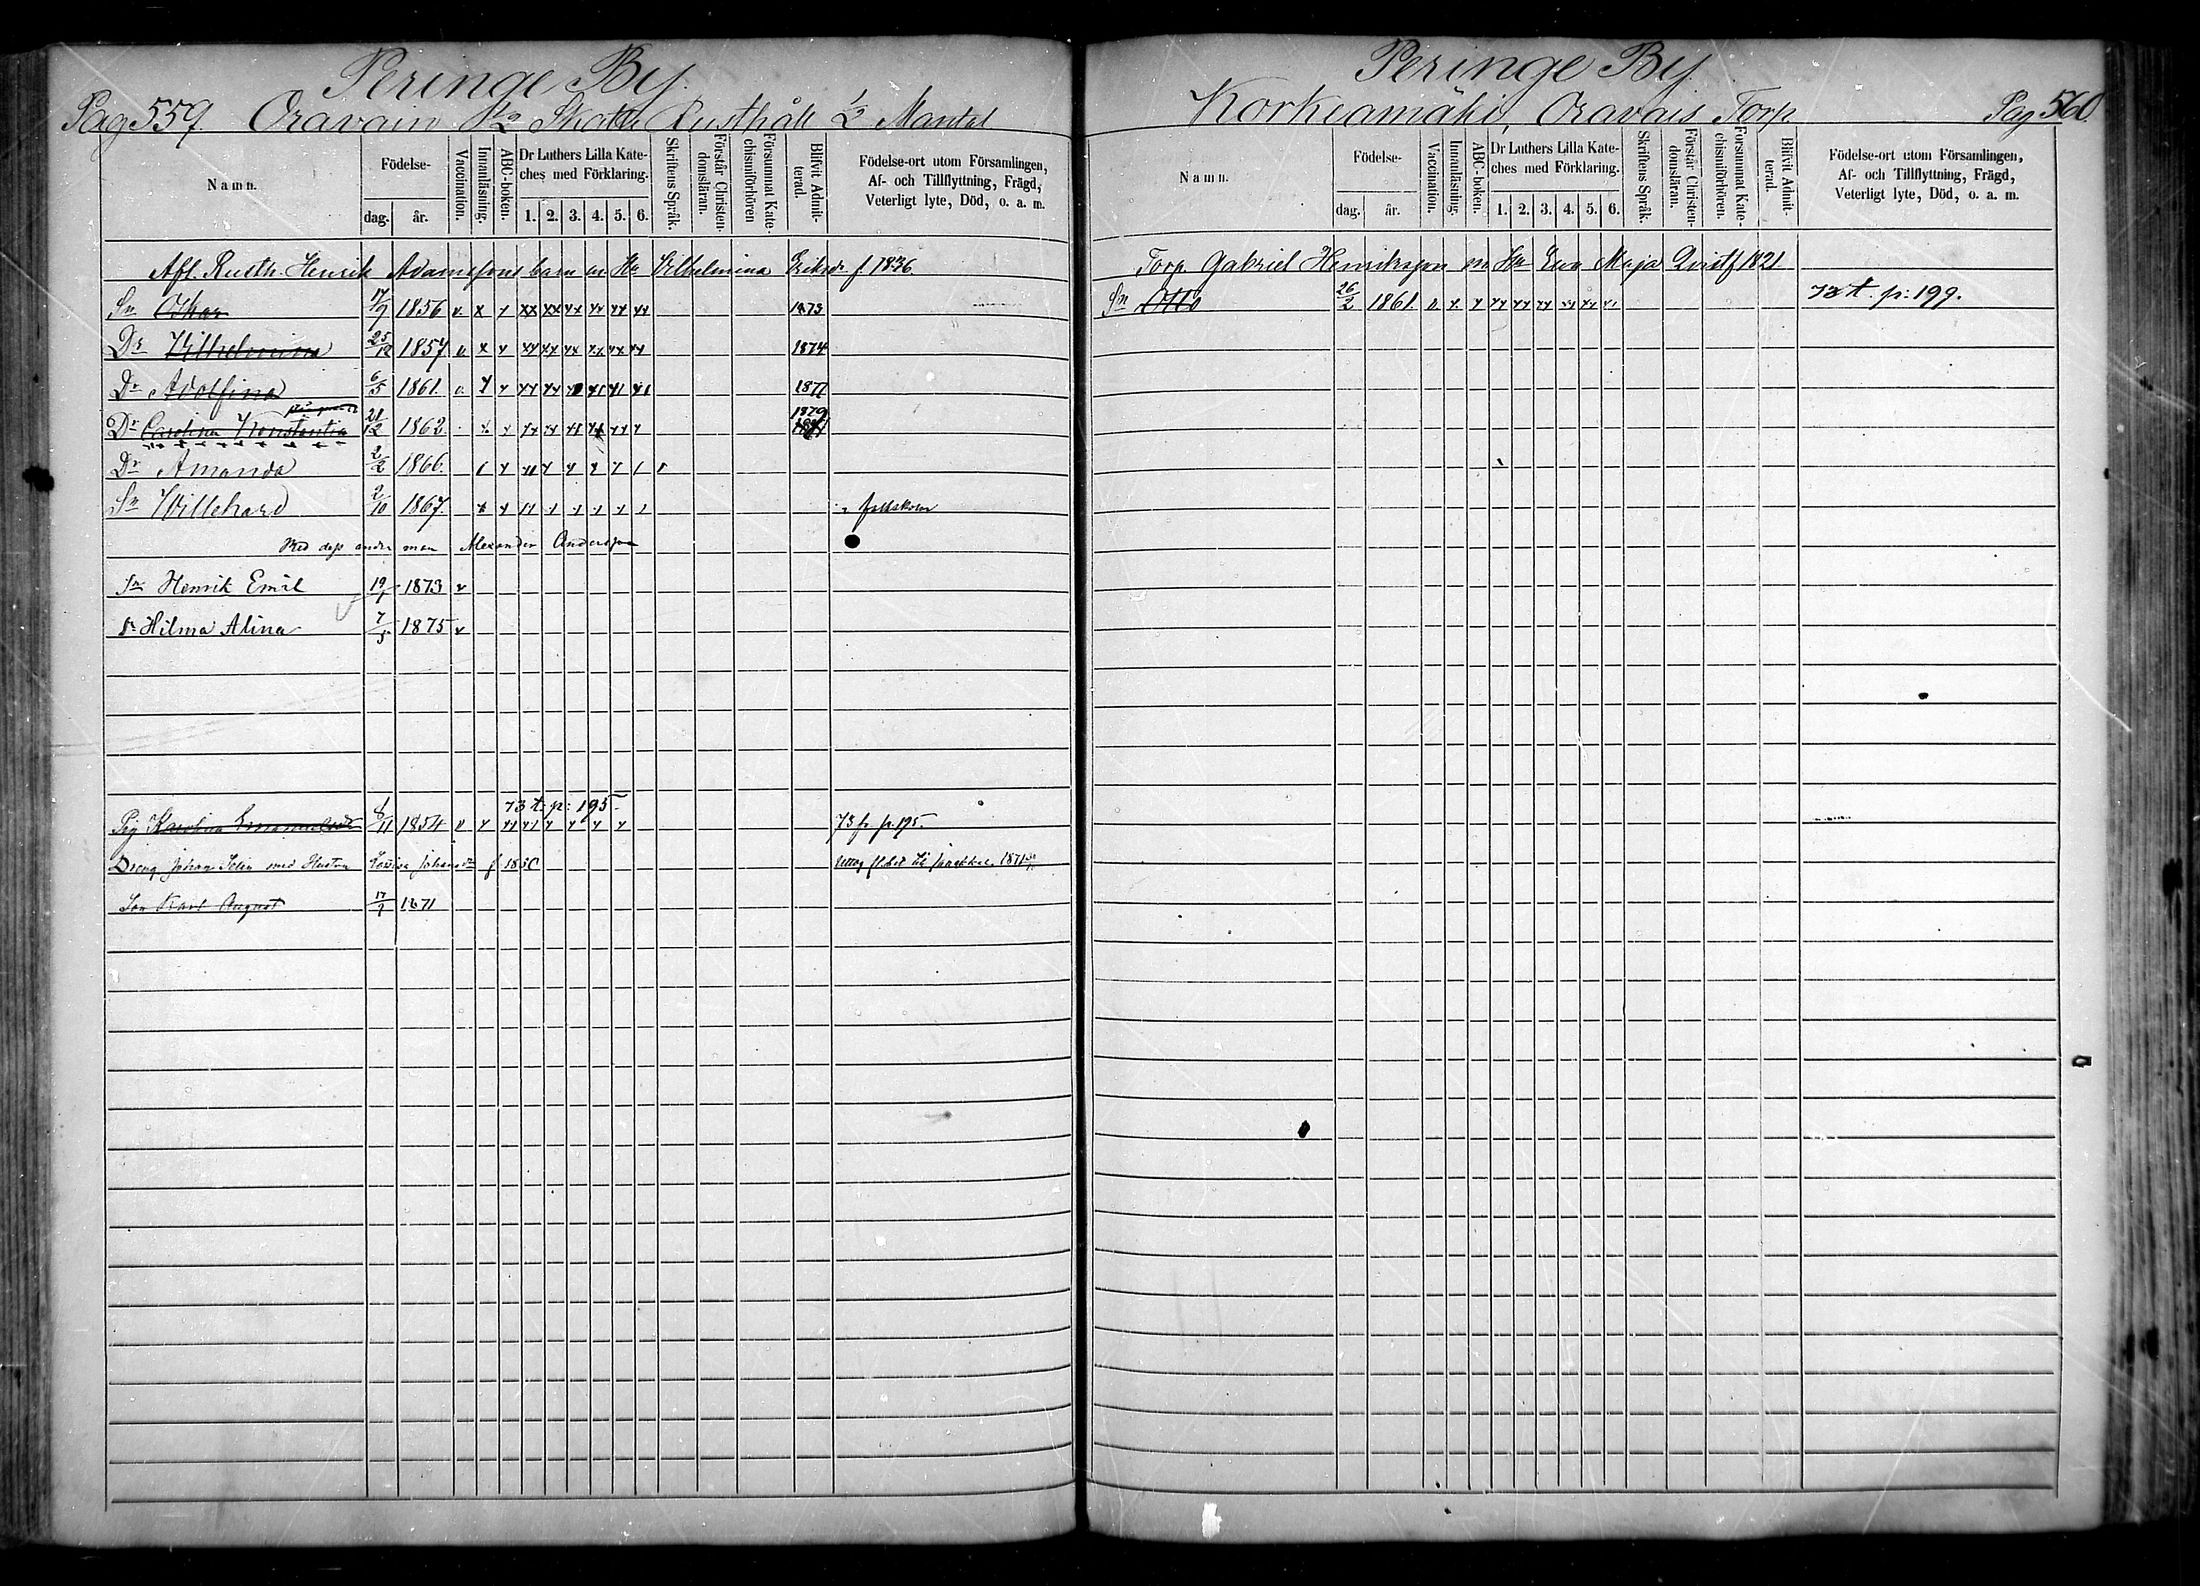 Peringe By.
Pag 559. Oravain 1/2 Skatte Rusthåll 1/2 Mantal
Namn.
Födelse-
dag. år.
Vaccination.
Innanläsning.
ABC-boken.
Dr Luthers Lilla Kate-
ches med Förklaring.
1. 2. 3. 4. 5. 6.
Skriftens Språk.
Förstår Christen-
domsläran.
Försummat Kate-
chismiförhören
Blifvit Admit-
terad.
Födelse-ort utom Församlingen,
Af- och Tillflyttning, Frägd,
Veterligt lyte, Död, o. a. m.
Afl. Rusth. Henrik Adamssons barn m. Hu Wilhelmina Eriksdr f. 1836
Sn Oskar 17/9 1856 v. x x xx xx xx xx xx xx 1873
Dr Wilhelmina 25/12 1857 v x x xx xx xx xx xx xx 1874
Dr Adolfina 6/5 1861. v. x x xx xx x x x x 1877
Dr Carolina Konstantia 21/12 1862 x x xx xx xx xx xx x 1879
Dr Amanda 2/2 1866.
Sn Willehard 2/10 1867. folkskolan
Med dess andre man Alexander Andersson
Sn Henrik Emil 19/7 1873 v
Dr Hilma Alina 7/5 1875 v
73 t. p: 195
Pig Karolina Emanuelsdr 6/11 1854 v x xx xx x x x x 73 fr p. 195.
Dreng Johan Selin med Hustru Lovisa Johansdr f 1850
Son Karl August 17/7 1871
Peringe By
Korkiamäki, Oravais Torp Pag 560.
Namn.
Födelse-
dag. år.
Vaccination.
Innanläsning.
ABC-boken.
Dr Luthers Lilla Kate-
ches med Förklaring.
1. 2. 3. 4. 5. 6.
Skriftens Språk.
Förstår Christen-
domsläran.
Försummat Kate-
chismiförhören.
Blifvit Admit-
terad.
Födelse-ort utom Församlingen,
Af- och Tillflyttning, Frägd,
Veterligt lyte, Död, o. a. m.
Torp Gabriel Henriksson m Hu Ewa Maja Qvist f 1821
Sn Otto 26/2 1861. v. x x xx xx xx xx xx x 73 t. p: 199.